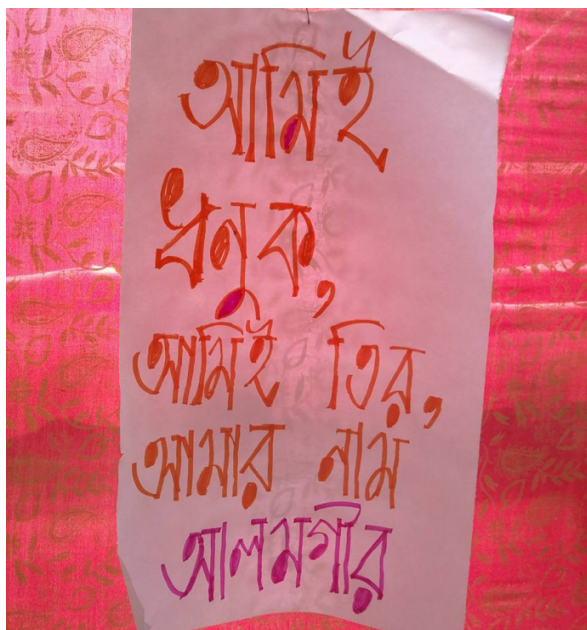 আমিই
ধনুক,
আমিই তির,
আমার নাম
আলমগীর